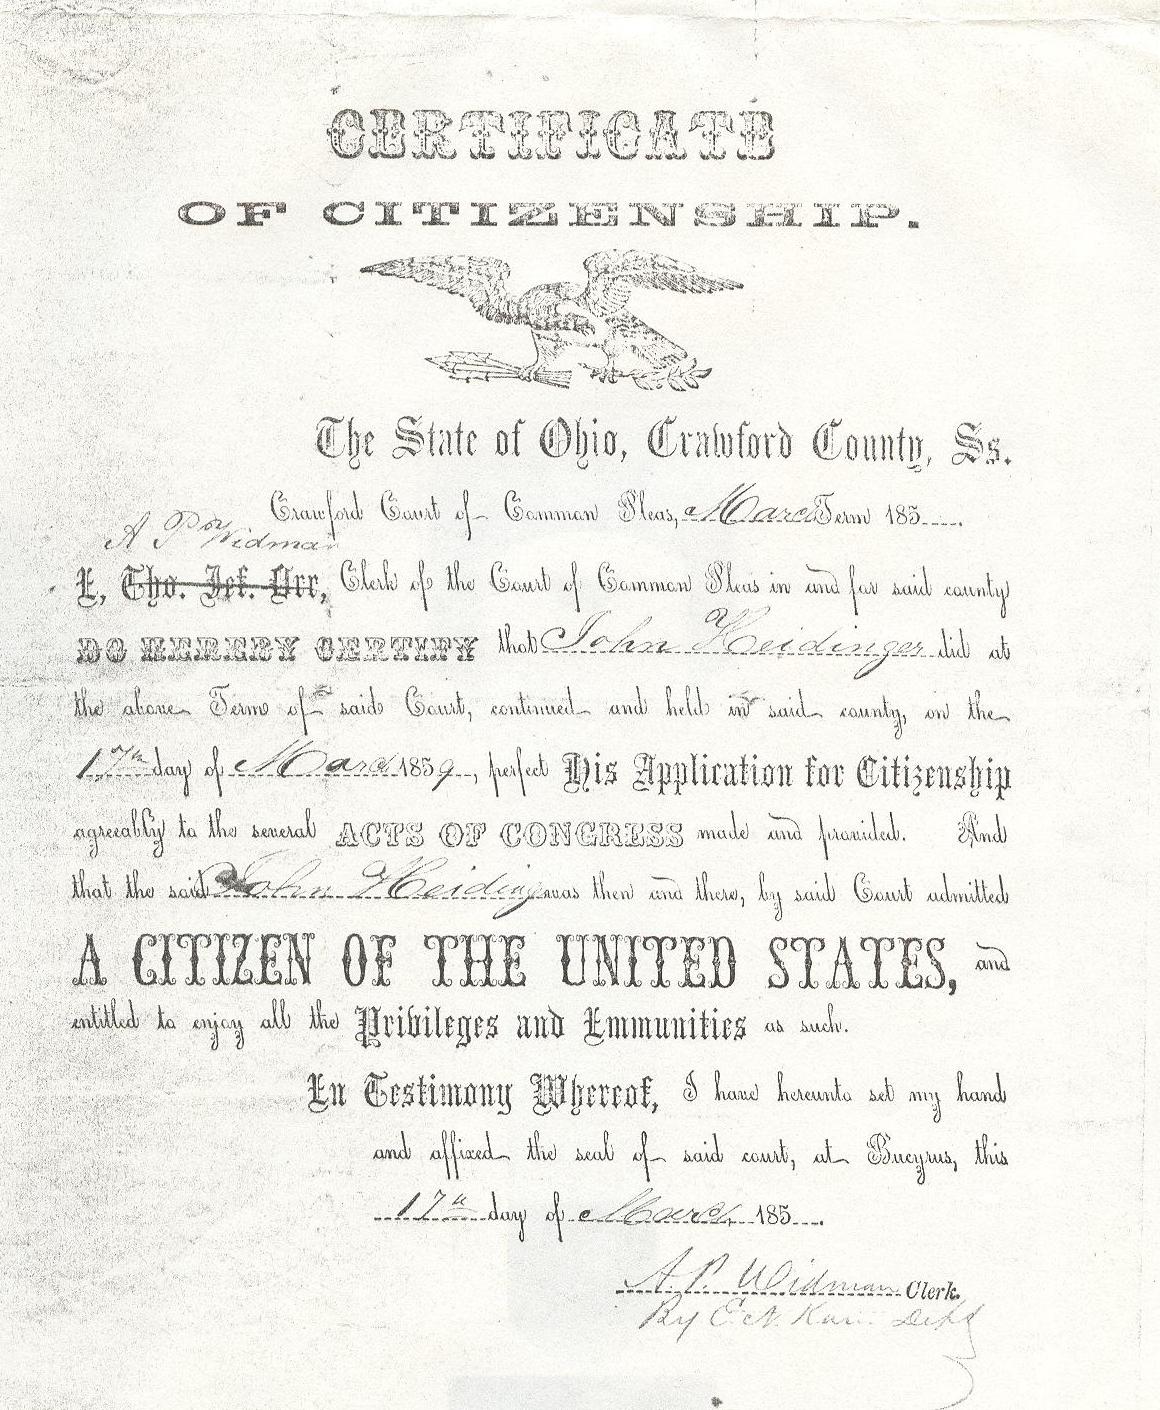 CERTIFICATE
OF CITIZENSHIP.
The State of Ohio, Crawford County, Ss.
Crawford Court of Common Pleas, March Term 185
A P Widman
I, Tho. Jef. Orr, Clerk of the Court of Common Pleas in and for said county
DO HEREBY CERTIFY that John Heidinger did at
the above Term of said Court, continued and held in said county, on the
17th day of March 1859, perfect His Application for Citizenship
agreeably to the several ACTS OF CONGRESS made and provided. And
that the said John Heidinger was then and there, by said Court admitted
A CITIZEN OF THE UNITED STATES, and
entitled to enjoy all the Privileges and Immunities as such.
In Testimony Whereof, I have hereunto set my hand
and affixed the seal of said court, at Bucyrus, this
17th day of March 185
A. P. Widman Clerk.
By